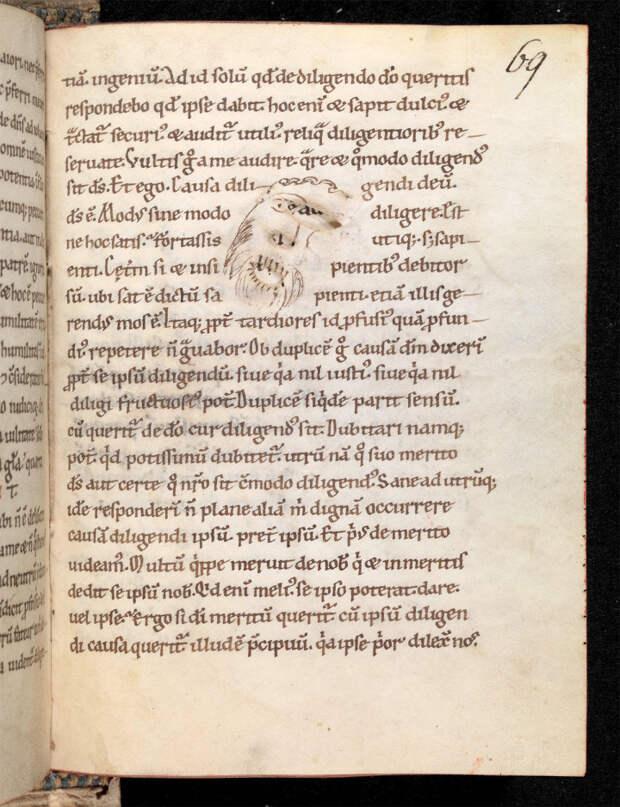 69
tiā. ingeniū. Ad id solū qđ de diligendo đo queritis
respondebo qđ ipse dabit. hoc eni᷒ & sapit dulci᷒. &
t̄ctat᷑ securi᷒. & audit᷑ utili᷒. reliq̄ diligentiorib᷒ re—
seruate. Vultis ḡ a me audire. q̄re & q̊modo diligend᷒
sit ds̄. Et ego. Causa dili gendi deū.
ds̄ ē. Mod᷒ sine modo diligere. Est
ne hoc satis. Fortassis utiq;. s; sapi—
enti. Cet̄m si & insi pientib᷒ debitor
sū. ubi sat ē dictū sa pienti. etiā illis ge—
rend᷒ mos ē. Itaq; ꝓpt̄ tardiores id ꝓfusi᷒ quā ꝓfun—
di᷒ repetere n̄ g̃uabor. Ob duplicē ḡ causā dm̄ dixeri᷒
ꝓpt̄ se ipsū diligendū. siue q̇a nil iusti᷒. siue q̇a nil
diligi fructuosi᷒ pot̄. Duplicē siq̇de᷒ parit sensū.
cū querit᷑ de do᷒ cur diligend᷒ sit. Dubitari namq;
pot̄. q̇d potissimū dubitet᷑. utrū nā q̊ suo merito
ds̄ aut certe q̊ nr̄o sit c̄modo diligend᷒. Sane ad utrūq;
idē responderi᷒ n̄ plane aliā m̄ dignā occurrere
causā diligendi ipsū. pret̄ ipsū. Et p̄᷒ de merito
uideam᷒. Multū q̇ppe meruit de nob̄ q̇ & inmeritis
dedit se ipsū nob̄. Qd eni᷒ meli᷒. se ipso poterat dare.
uel ipse. Ergo si di᷒ meritū querit᷑ cū ipsū diligen
di causa querit᷑ illud ē p̄cipuū. q̇a ipse ṗor dilex̄ nos.